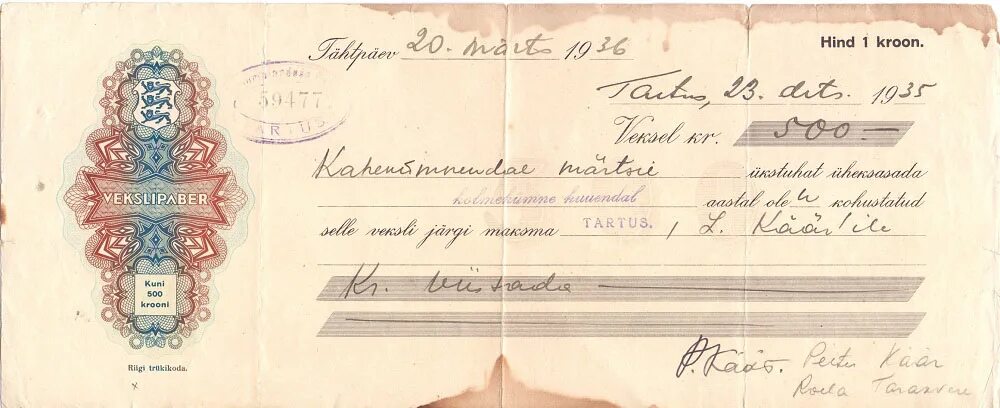 Tähtpäev 20. märts 1936
Hind 1 kroon.
59477
TARTUS
Tartus, 23. dets. 1935
Veksel kr. 500 —
Kahekümnendal märtsil ükstuhat üheksasada
kolmekümne kuuendal aastal olen kohustatud
selle veksli järgi maksma TARTUS. L. Kään'ile
Kr. viissada
VEKSLIPABER
Kuni
500
krooni
Riigi trükikoda.
P. Kään. Peetri Kään